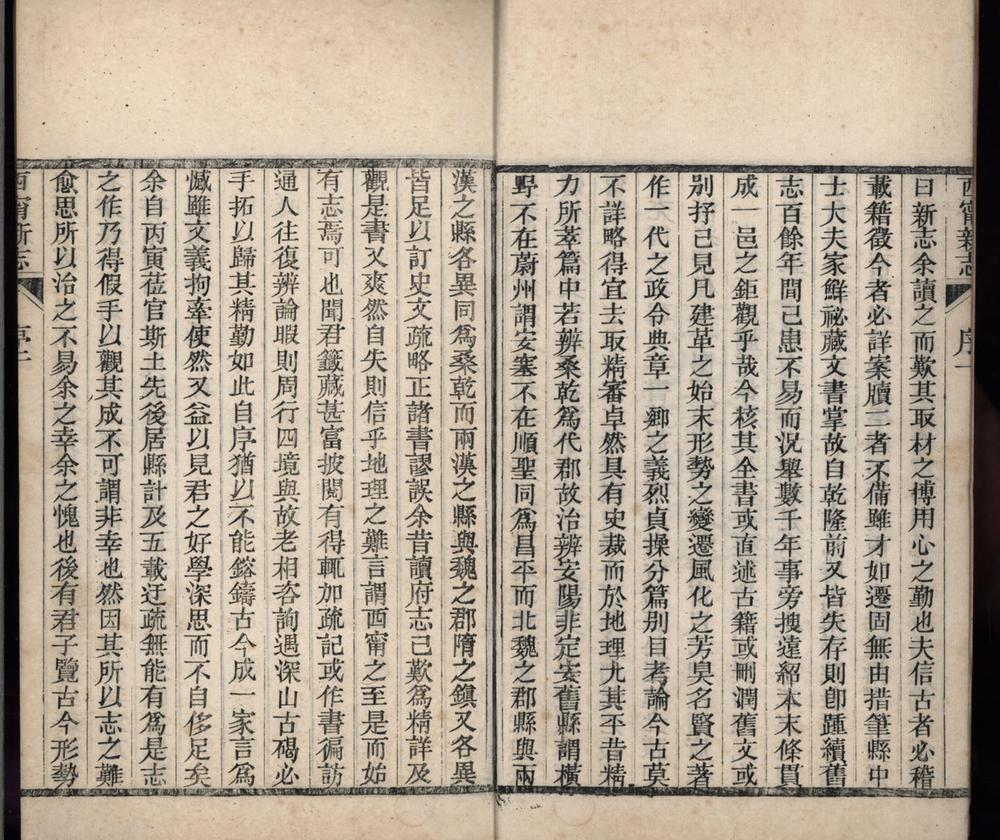 西甯新志
序一
曰新志余讀之而歎其取材之博用心之勤也夫信古者必稽
載籍徵今者必詳案牘二者不備雖才如遷固無由措筆縣中
士大夫家鮮祕藏文書掌故自乾隆前又皆失存則卽踵續舊
志百餘年間已患不易而況舉數千年事旁搜遠紹本末條貫
成一邑之鉅觀乎哉今核其全書或直述古籍或刪潤舊文或
別抒己見凡建革之始末形勢之變遷風化之芳臭名賢之著
作一代之政令典章一鄉之義烈貞操分篇別目考論今古莫
不詳略得宜去取精審卓然具有史裁而於地理尤其平昔精
力所萃篇中若辨桑乾爲代郡故治辨安陽非定安舊縣謂橫
野不在蔚州謂安塞不在順聖同爲昌平而北魏之郡縣與兩
漢之縣各異同爲桑乾而兩漢之縣與魏之郡隋之鎮又各異
皆足以訂史文疏略正諸書謬誤余昔讀府志已歎爲精詳及
觀是書又爽然自失則信乎地理之難言謂西甯之至是而始
有志焉可也聞君籤藏甚富披閱有得輒加疏記或作書徧訪
通人往復辨論暇則周行四境與故老相咨詢遇深山古碣必
手拓以歸其精勤如此自序猶以不能鎔鑄古今成一家言爲
憾雖文義拘牽使然又益以見君之好學深思而不自侈足矣
余自丙寅莅官斯土先後居縣計及五載迂疏無能有爲是志
之作乃得假手以觀其成不可謂非幸也然因其所以志之難
愈思所以治之不易余之幸余之愧也後有君子覽古今形勢
西甯新志
序二